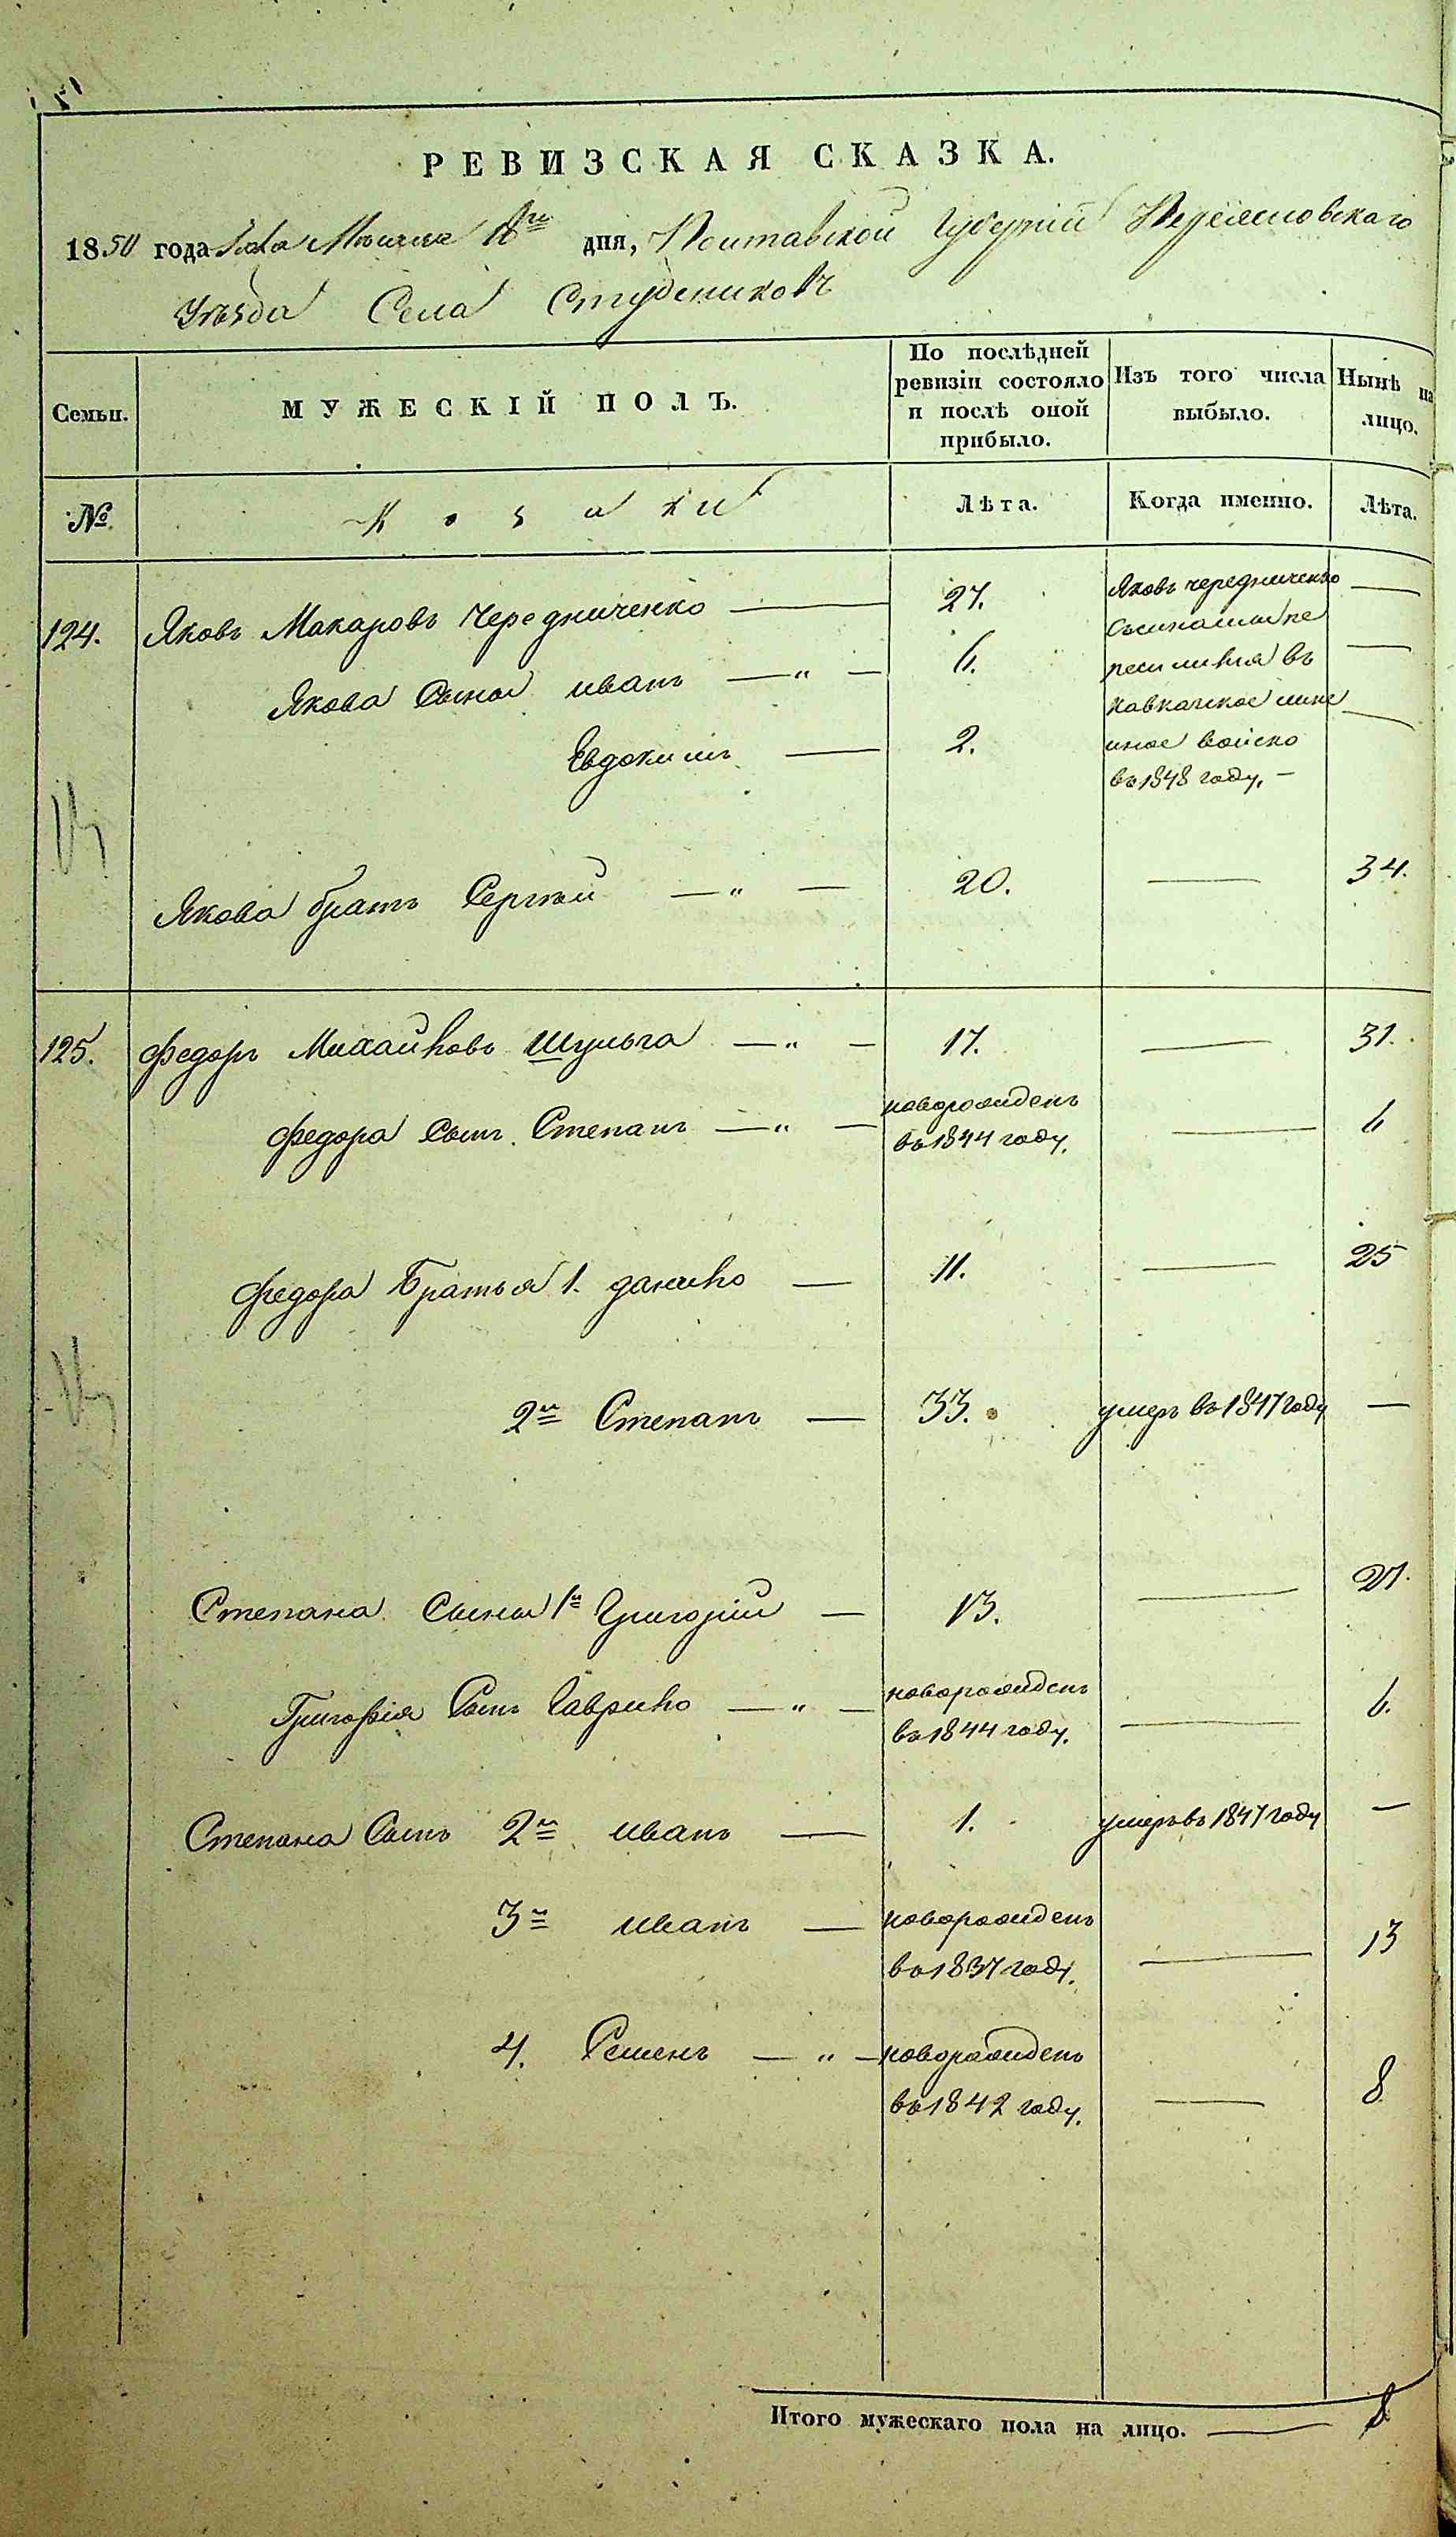 РЕВИЗСКАЯ СКАЗКА.
1850 года дня, Полтавской Губерніи Переяславскаго
Уѣзда Села Студениковъ
Семьи.
МУЖЕСКІЙ ПОЛЪ.
По послѣдней
ревизіи состояло
и послѣ оной
прибыло.
Изъ того числа
выбыло.
Нынѣ на
лицо.
№
Козаки
Лѣта.
Когда именно.
Лѣта.
124. Яковъ Макаровъ Чередниченко — 27. —
Якова Сыны иванъ —〃— 6. —
Евдокимъ — 2. —
Яковъ чередниченко
Сыинамы пе
реселился въ
Кавказкое лине
иное войско
въ 1848 году. —
Якова братъ Сергѣй —〃— 20. — 34.
125. Федоръ Михайловъ Шульга —〃— 17. — 31.
Федора Сынъ Степанъ —〃— новорожденъ
въ 1844 году. — 6
Федора Братья 1. данило — 11. — 25
2й Степанъ — 33. умеръ въ 1847 году —
Степана Сыны 1й Григорій — 13. — 27.
Григорія Сынъ Гаврило —〃— новорожденъ
въ 1844 году. — 6.
Степана Сынъ 2й иванъ — 1. умеръ въ 1847 году —
3й иванъ — новорожденъ
въ 1837 году. — 13
4. Семенъ —〃— новорожденъ
въ 1842 году. — 8
Итого мужескаго пола на лицо. — 8